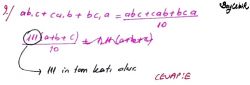 2/ ab,c + ca,b + bc,a = abc+cab+bca
10
111 (a+b+c)
10
→ 111 in tam katı olur.
CEVAP: E